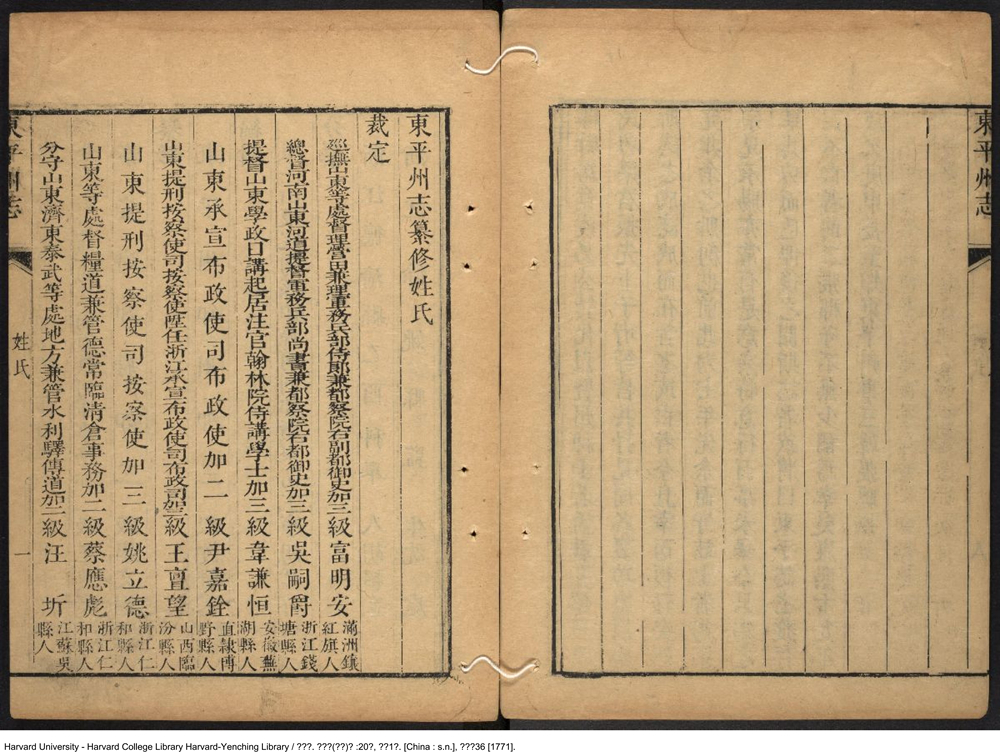 東平州志
東平州志纂修姓氏
裁定
巡撫山東等處督理營田兼理軍務兵部侍郎兼都察院右副都御史加三級富明安滿洲鑲紅旗人
總督河南山東河道提督軍務兵部尚書兼都察院右都御史加三級吳嗣爵浙江錢塘縣人
提督山東學政日講起居注官翰林院侍講學士加三級韋謙恒安徽蕪湖縣人
山東承宣布政使司布政使加二級尹嘉銓直隸博野縣人
山東提刑按察使司按察使陞任浙江承宣布政使司布政司加三級王亶望山西臨汾縣人
山東提刑按察使司按察使加三級姚立德浙江仁和縣人
山東等處督糧道兼管德常臨清倉事務加二級蔡應彪浙江仁和縣人
分守山東濟東泰武等處地方兼管水利驛傳道加二級汪圻江蘇吳縣人
東平州志
姓氏
一
Harvard University - Harvard College Library Harvard-Yenching Library / ???. ???(??)? :20?, ??1?. [China : s.n.], ???36 [1771].